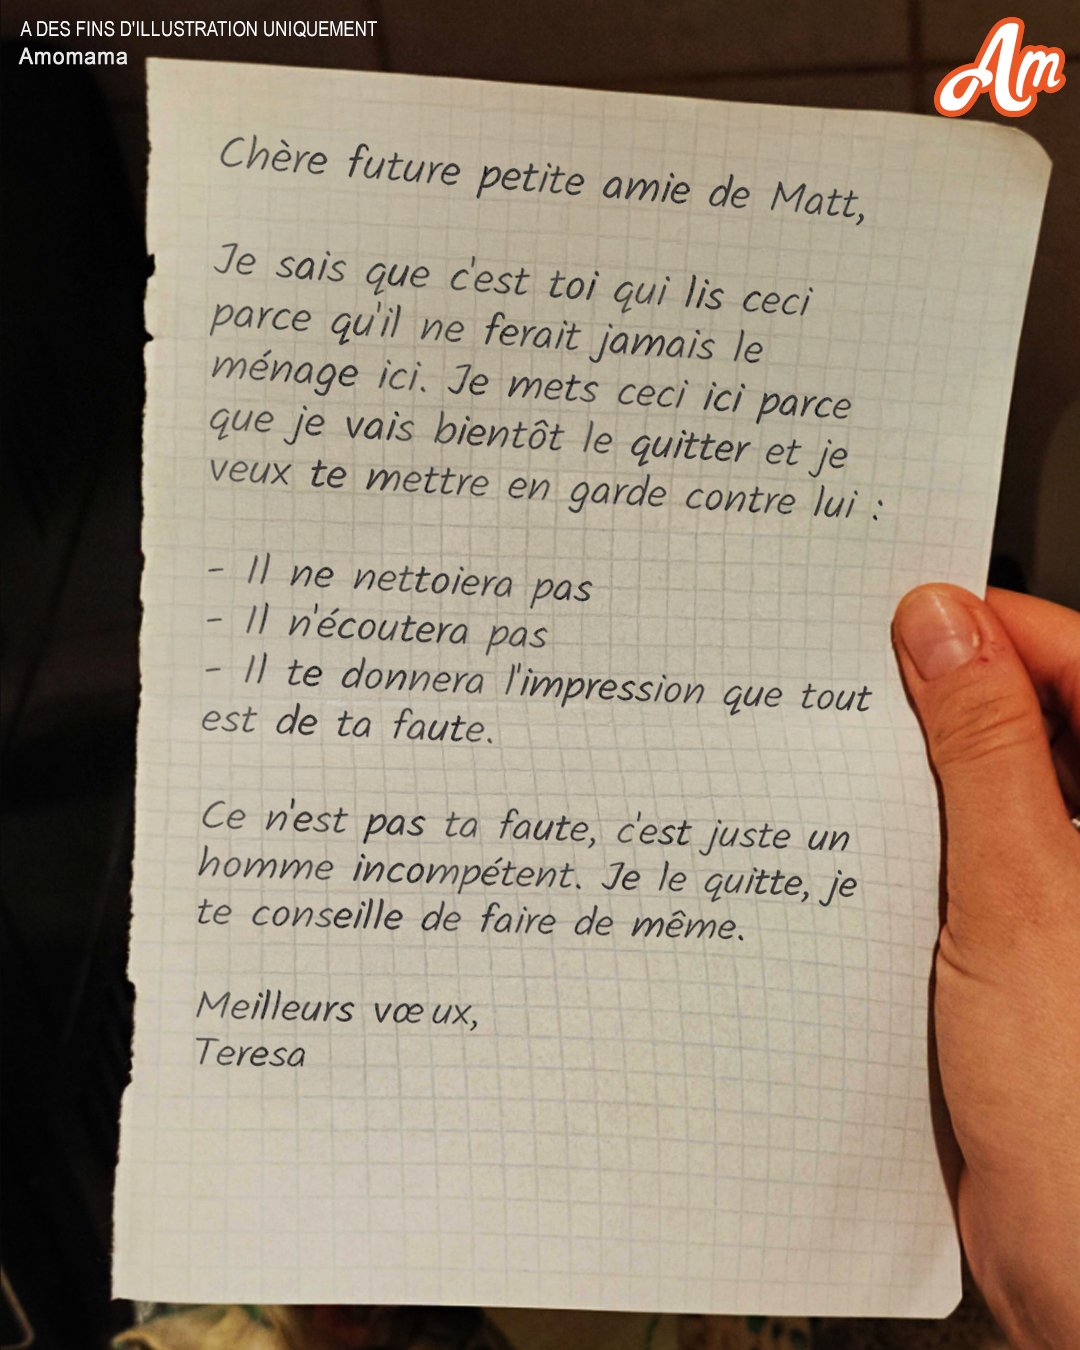 A DES FINS D'ILLUSTRATION UNIQUEMENT
Amomama
Am
Chère future petite amie de Matt,
Je sais que c'est toi qui lis ceci
parce qu'il ne ferait jamais le
ménage ici. Je mets ceci ici parce
que je vais bientôt le quitter et je
veux te mettre en garde contre lui :
- Il ne nettoiera pas
- Il n'écoutera pas
- Il te donnera l'impression que tout
est de ta faute.
Ce n'est pas ta faute, c'est juste un
homme incompétent. Je le quitte, je
te conseille de faire de même.
Meilleurs vœux,
Teresa